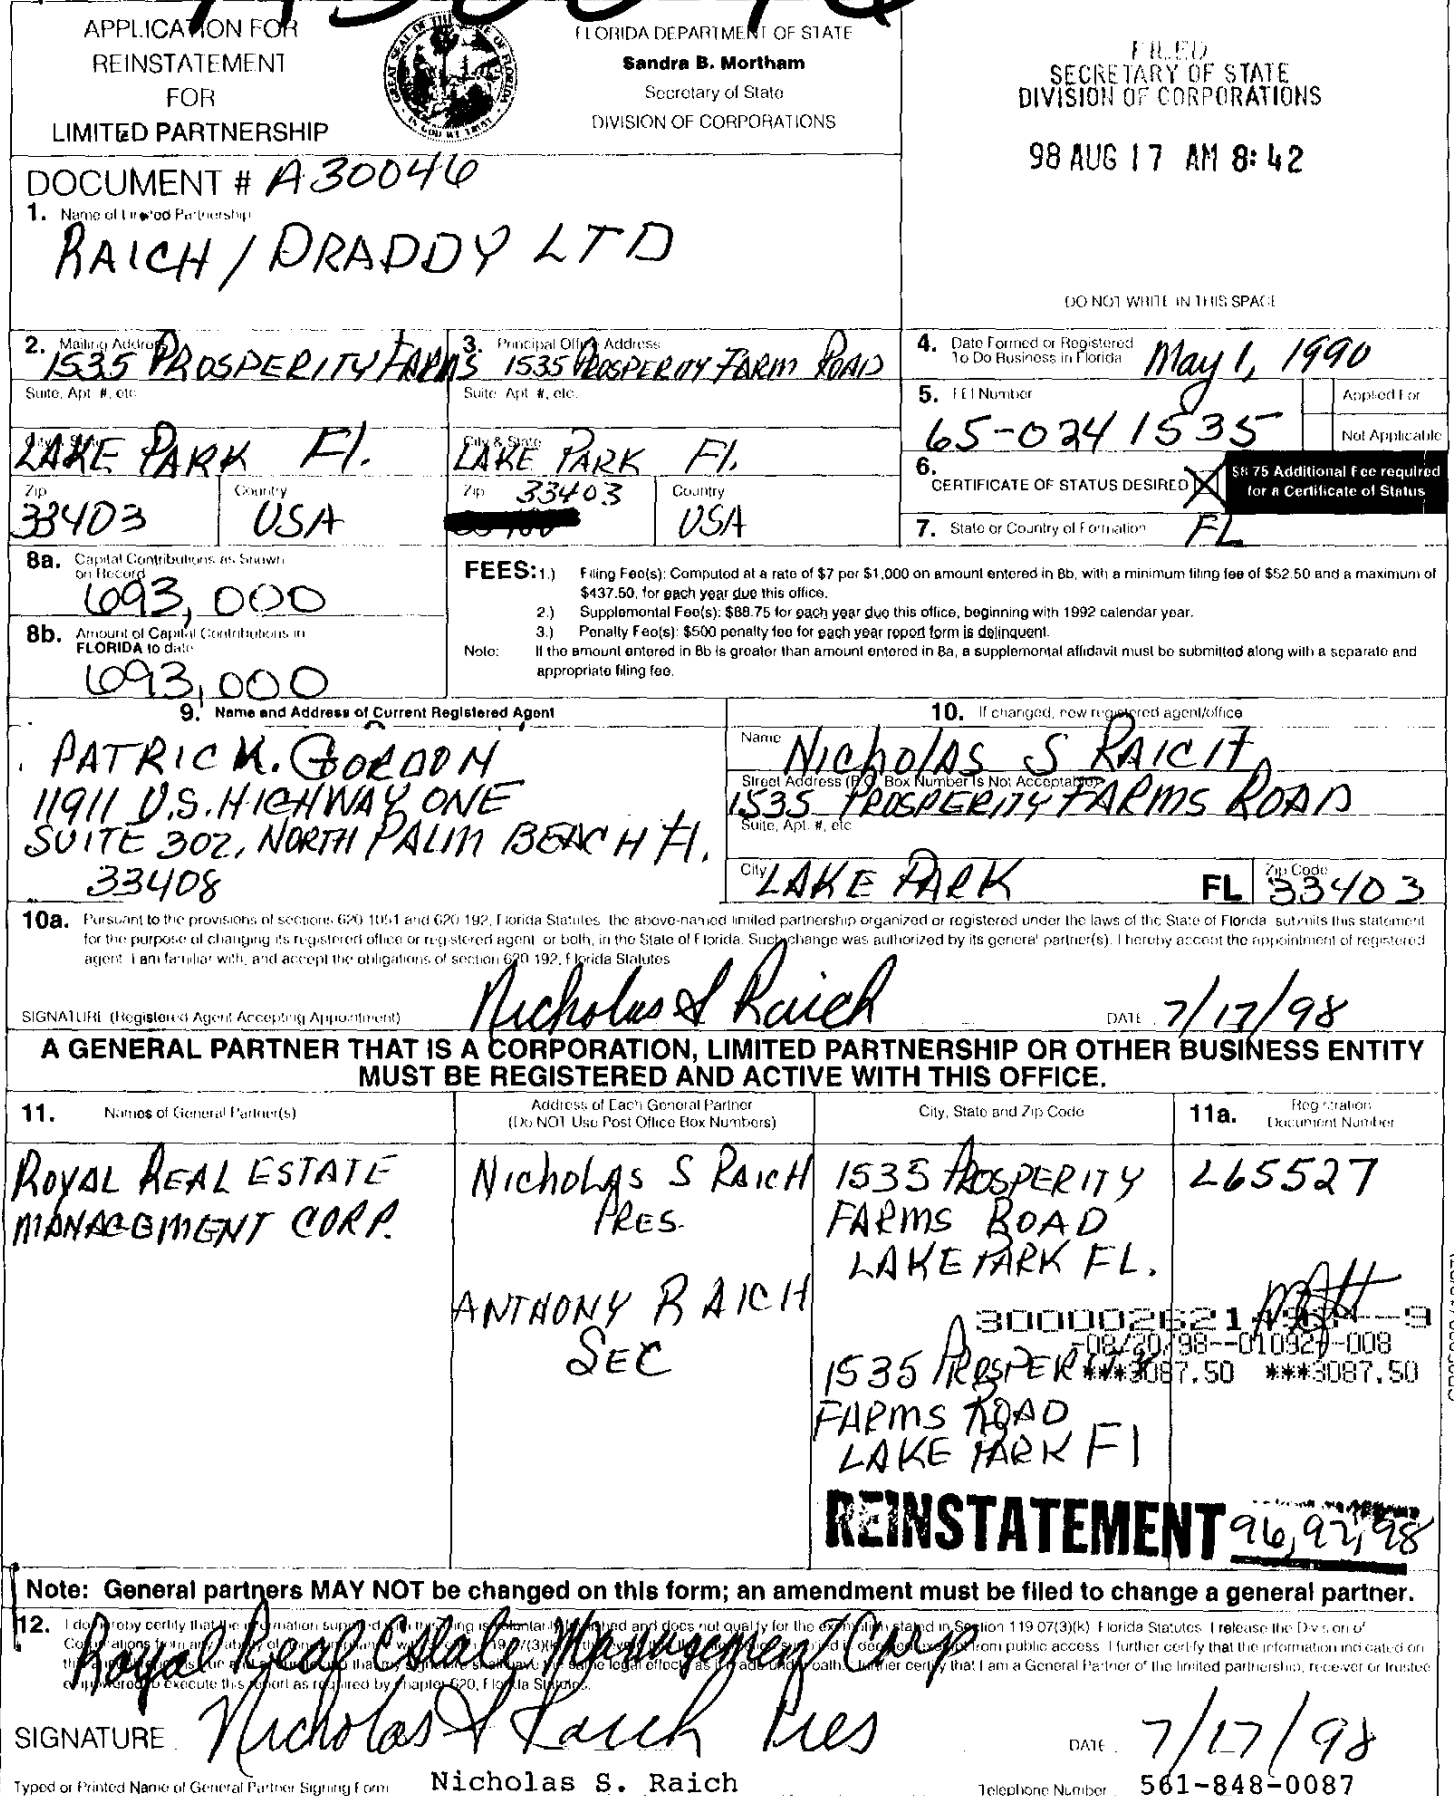 APPLICATION FOR
REINSTATEMENT
FOR
LIMITED PARTNERSHIP
FLORIDA DEPARTMENT OF STATE
Sandra B. Mortham
Secretary of State
DIVISION OF CORPORATIONS
FILED
SECRETARY OF STATE
DIVISION OF CORPORATIONS
98 AUG 17 AM 8:42
DOCUMENT # A30046
1. Name of Limited Partnership
RAICH / DRADDY LTD
DO NOT WRITE IN THIS SPACE
2. Mailing Address
1535 PROSPERITY FARMS
3. Principal Office Address
1535 PROSPERITY FARM ROAD
4. Date Formed or Registered
To Do Business in Florida
May 1, 1990
Suite, Apt. #, etc.
Suite, Apt. #, etc.
5. FEI Number
65-0241535
Applied For
Not Applicable
City & State
LAKE PARK Fl.
City & State
LAKE PARK Fl.
6. CERTIFICATE OF STATUS DESIRED X
$8.75 Additional Fee required
for a Certificate of Status
Zip
33403
Country
USA
Zip 33403
Country
USA
7. State or Country of Formation FL
8a. Capital Contributions as Shown
on Record
693,000
8b. Amount of Capital Contributions in
FLORIDA to date
693,000
FEES: 1.) Filing Fee(s): Computed at a rate of $7 per $1,000 on amount entered in 8b, with a minimum filing fee of $52.50 and a maximum of
$437.50, for each year due this office.
2.) Supplemental Fee(s): $88.75 for each year due this office, beginning with 1992 calendar year.
3.) Penalty Fee(s): $500 penalty fee for each year report form is delinquent.
Note: If the amount entered in 8b is greater than amount entered in 8a, a supplemental affidavit must be submitted along with a separate and
appropriate filing fee.
9. Name and Address of Current Registered Agent
PATRICK. GORDON
11911 U.S. HIGHWAY ONE
SUITE 302, NORTH PALM BEACH Fl.
33408
10. If changed, new registered agent/office
Name
Nicholas S RAICH
Street Address (P.O. Box Number Is Not Acceptable)
1535 PROSPERITY FARMS ROAD
Suite, Apt. #, etc
City LAKE PARK FL Zip Code 33403
10a. Pursuant to the provisions of sections 620.1051 and 620.192, Florida Statutes, the above-named limited partnership organized or registered under the laws of the State of Florida, submits this statement
for the purpose of changing its registered office or registered agent, or both, in the State of Florida. Such change was authorized by its general partner(s). I hereby accept the appointment of registered
agent. I am familiar with, and accept the obligations of section 620.192, Florida Statutes
SIGNATURE (Registered Agent Accepting Appointment) Nicholas S Raich DATE 7/17/98
A GENERAL PARTNER THAT IS A CORPORATION, LIMITED PARTNERSHIP OR OTHER BUSINESS ENTITY
MUST BE REGISTERED AND ACTIVE WITH THIS OFFICE.
11. Names of General Partner(s)
Address of Each General Partner
(Do NOT Use Post Office Box Numbers)
City, State and Zip Code
11a. Registration
Document Number
ROYAL REAL ESTATE
MANAGEMENT CORP.
Nicholas S RAICH
PRES.
1535 PROSPERITY
FARMS ROAD
LAKE PARK FL.
L65527
ANTHONY RAICH
SEC
-08/20/98--01092--008
***3087.50 ***3087.50
1535 PROSPERITY
FARMS ROAD
LAKE PARK Fl
REINSTATEMENT 96,97,98
Note: General partners MAY NOT be changed on this form; an amendment must be filed to change a general partner.
12. I do hereby certify that the information supplied with this filing is voluntarily furnished and does not qualify for the exemption stated in Section 119.07(3)(k), Florida Statutes. I release the Division of
Corporations from any liability of from public access. I further certify that the information indicated on
this is true and that my signature shall have the same legal effect as if made under oath. I further certify that I am a General Partner of the limited partnership, receiver or trustee
empowered to execute this report as required by chapter 620, Florida Statutes.
Royal Real Estate Management Corp
SIGNATURE Nicholas S Raich Pres DATE 7/17/98
Typed or Printed Name of General Partner Signing Form Nicholas S. Raich Telephone Number 561-848-0087